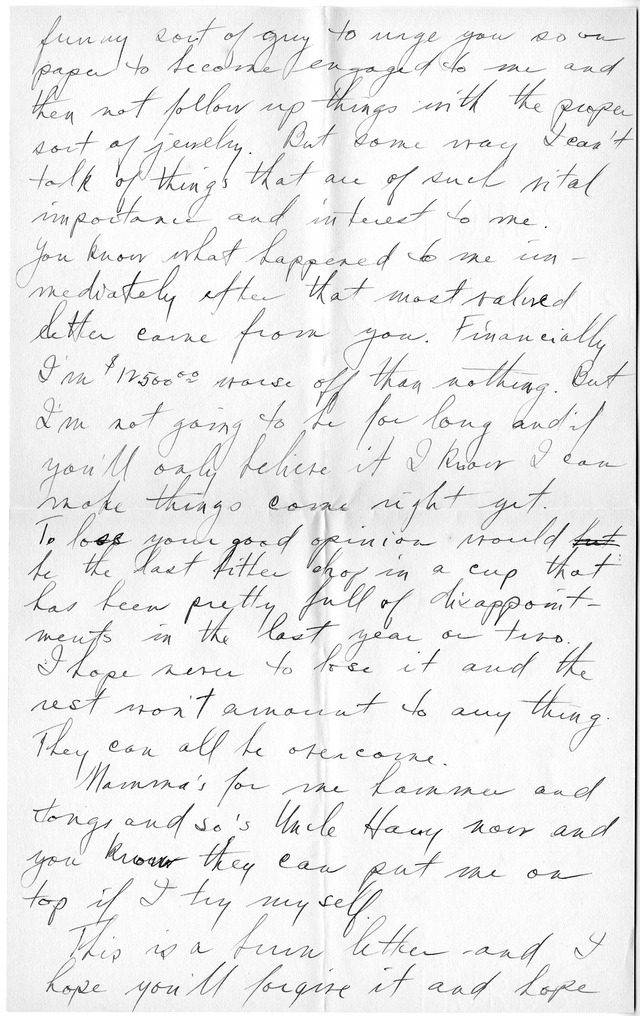 funny sort of guy to urge you so on
paper to become engaged to me and
then not follow up things with the proper
sort of jewelry. But some way I can't
talk of things that are of such vital
importance and interest to me.
You know what happened to me im-
mediately after that most valued
letter came from you. Financially
I'm $12500.00 worse off than nothing. But
I'm not going to be for long and if
you'll only believe it I know I can
make things come right yet.
To lose your good opinion would but
be the last bitter drop in a cup that
has been pretty full of disappoint-
ments in the last year or two.
I hope never to lose it and the
rest won't amount to any thing.
They can all be overcome.
Mamma's for me hammer and
tongs and so's Uncle Harry now and
you know they can put me on
top if I try myself.
This is a bum letter and I
hope you'll forgive it and hope